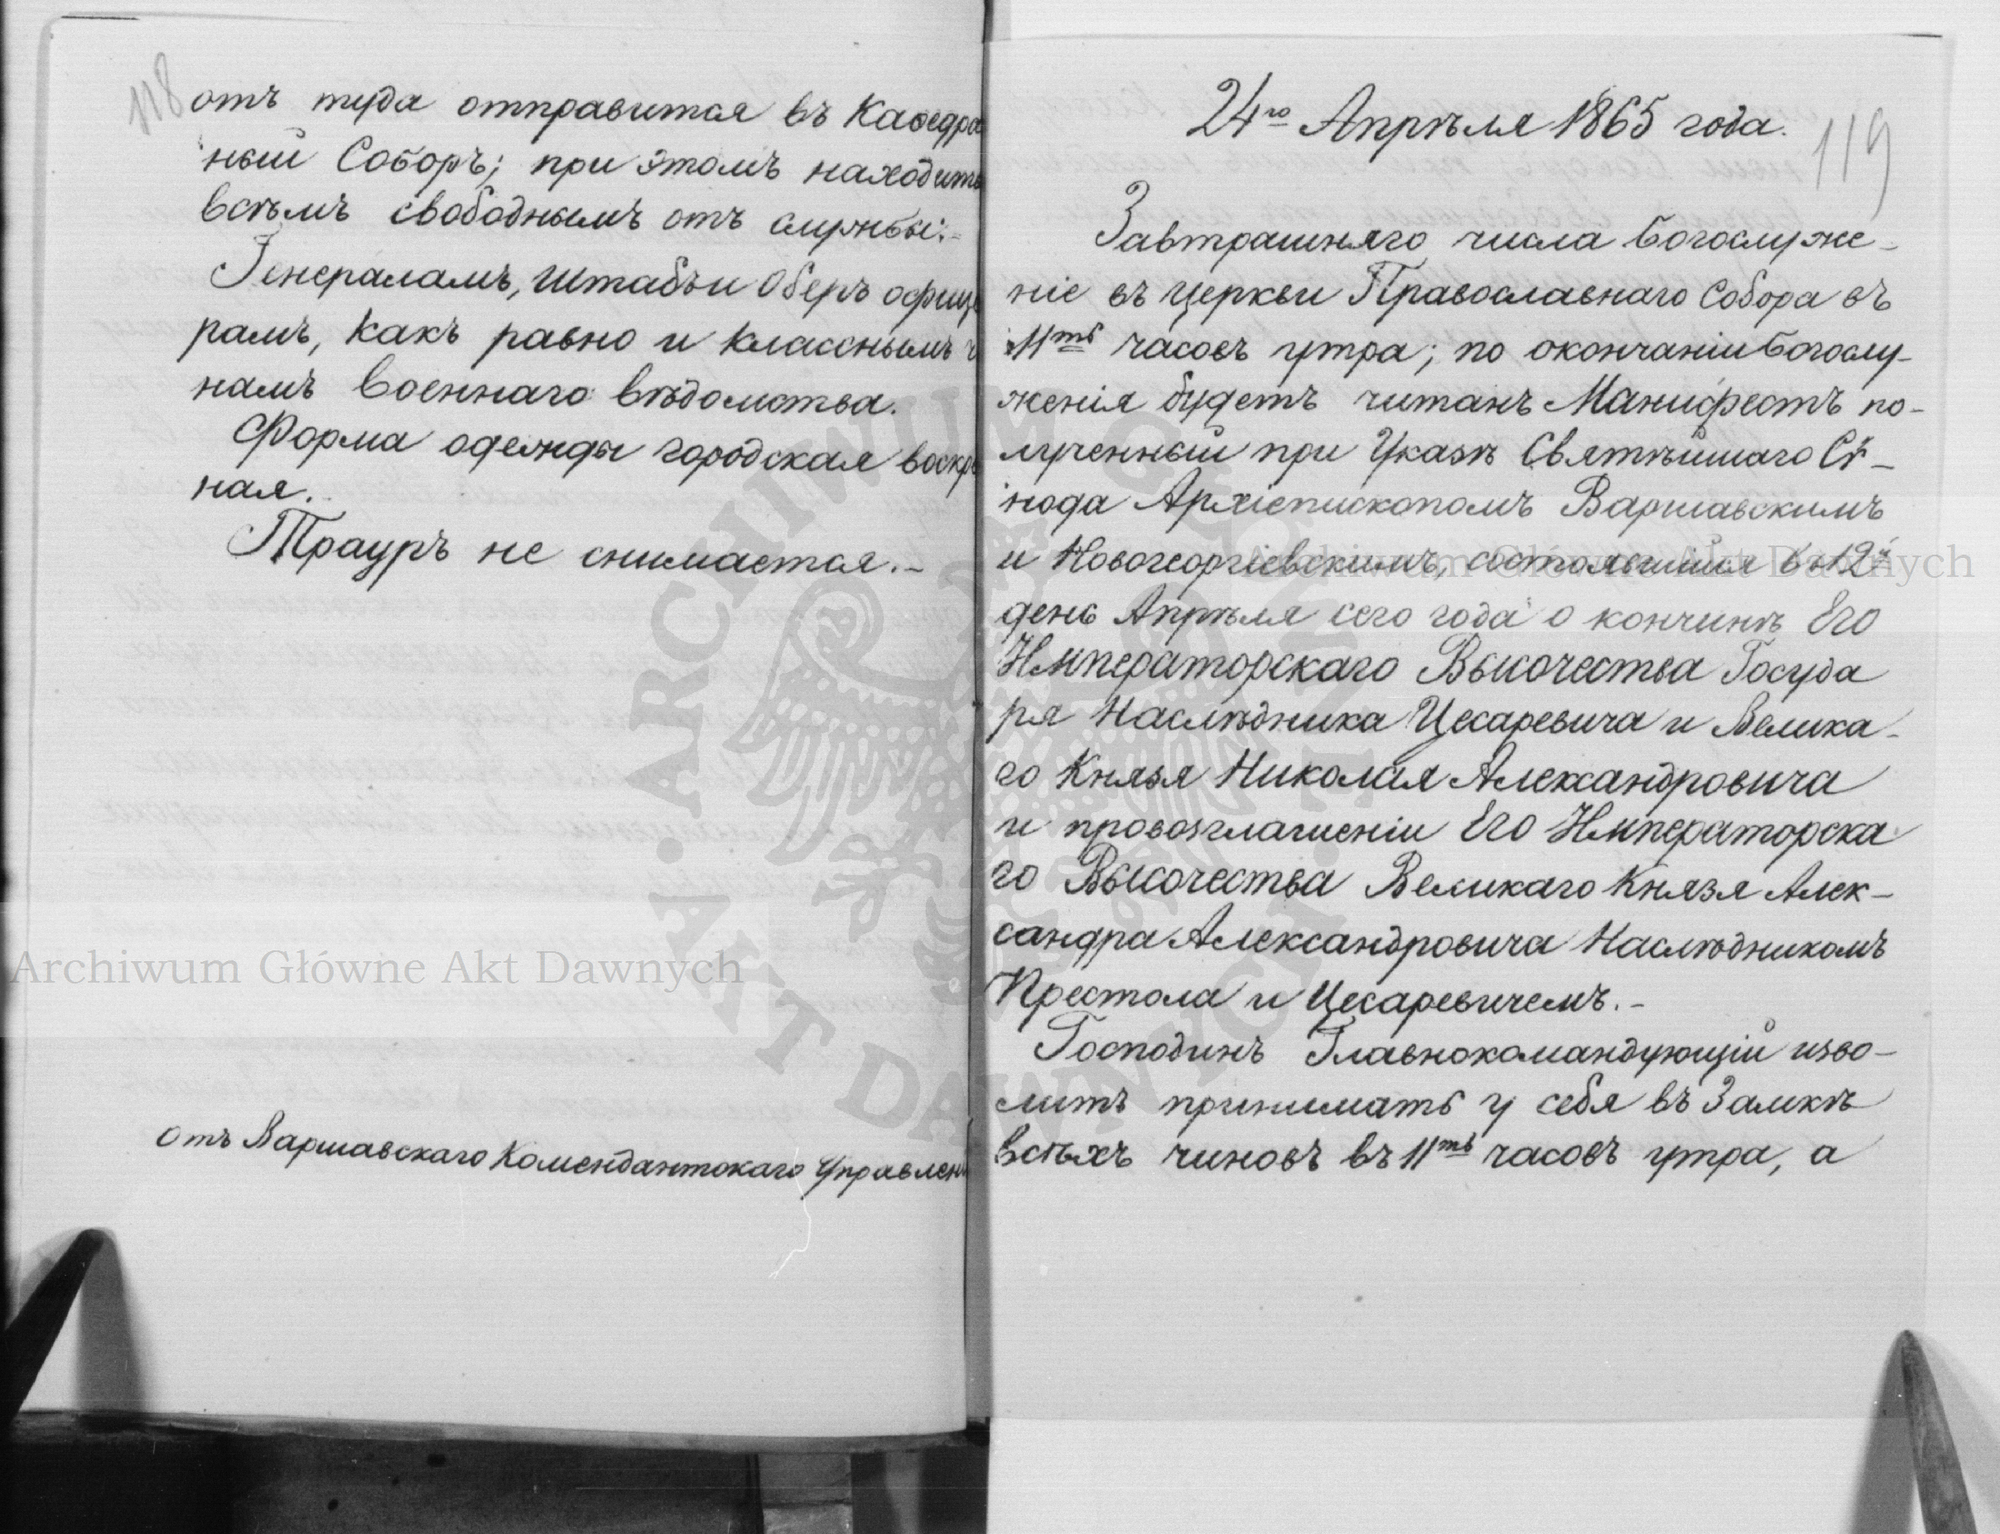 118
отъ туда отправится въ Каѳедра
ный Соборъ; при этомъ находить
всѣмъ свободнымъ отъ службы:
Генераламъ, Штабъ и Оберъ офице
рамъ, какъ равно и класснымъ ч
намъ Военнаго вѣдомства.
Форма одежды городская воскр
ная.
Трауръ не снимается.-
отъ Варшавскаго Комендантскаго Управлен
119
24го Апрѣля 1865 года.
Завтрашняго числа Богослуже-
ніе въ церкви Православнаго Собора въ
11ть часовъ утра; по окончаніи Богослу-
женія будетъ читанъ Манифестъ по-
лученный при Указѣ Святѣйшаго Сѵ-
нода Архіепископомъ Варшавскимъ
и Новогеоргіевскимъ, состоявшійся въ 12й
день Апрѣля сего года о кончинѣ Его
Императорскаго Высочества Госуда
ря Наслѣдника Цесаревича и Велика-
го Князя Николая Александровича
и провозглашеніи Его Императорска
го Высочества Великаго Князя Алек-
сандра Александровича Наслѣдникомъ
Престола и Цесаревичемъ.-
Господинъ Главнокомандующій изво-
литъ принимать у себя въ Замкѣ
всѣхъ чиновъ въ 11ть часовъ утра, а
Archiwum Główne Akt Dawnych
Archiwum Główne Akt Dawnych
ARCHIWUM GŁÓWNE AKT DAWNYCH